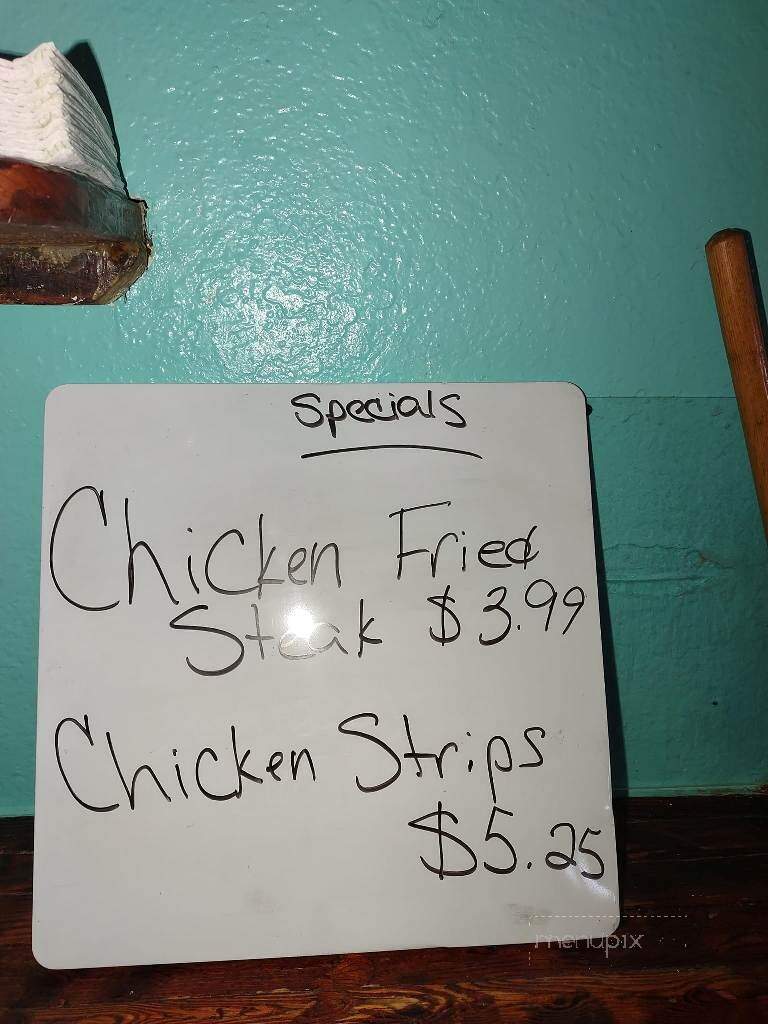 Specials
Chicken Fried
Steak $3.99
Chicken Strips
$5.25
menupix